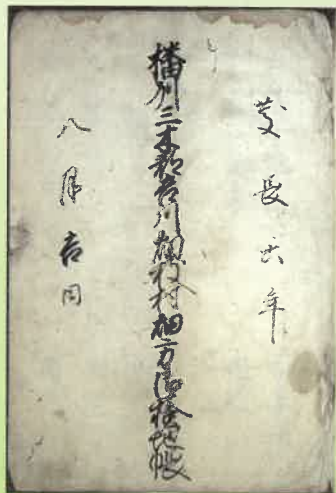 慶長六年
播州三木郡吉川村畑方御検地帳
八月吉日